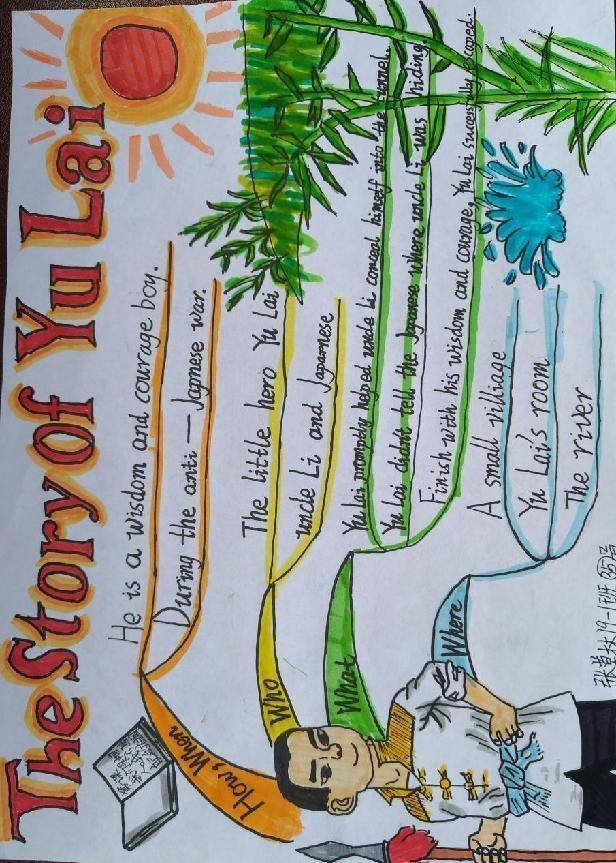 The Story of Yu Lai
How When
He is a wisdom and courage boy.
During the anti — Japnese war.
Who
The little hero Yu Lai
uncle Li and Japarnese
What
Yu Lai promptly helped uncle Li conceal himself into the tunnel.
Yu Lai didn't tell the Japanese where uncle Li was hiding
Finish with his wisdom and courage, Yu Lai successfully escaped.
Where
A small villiage
Yu Lai's room
The river
19-1班